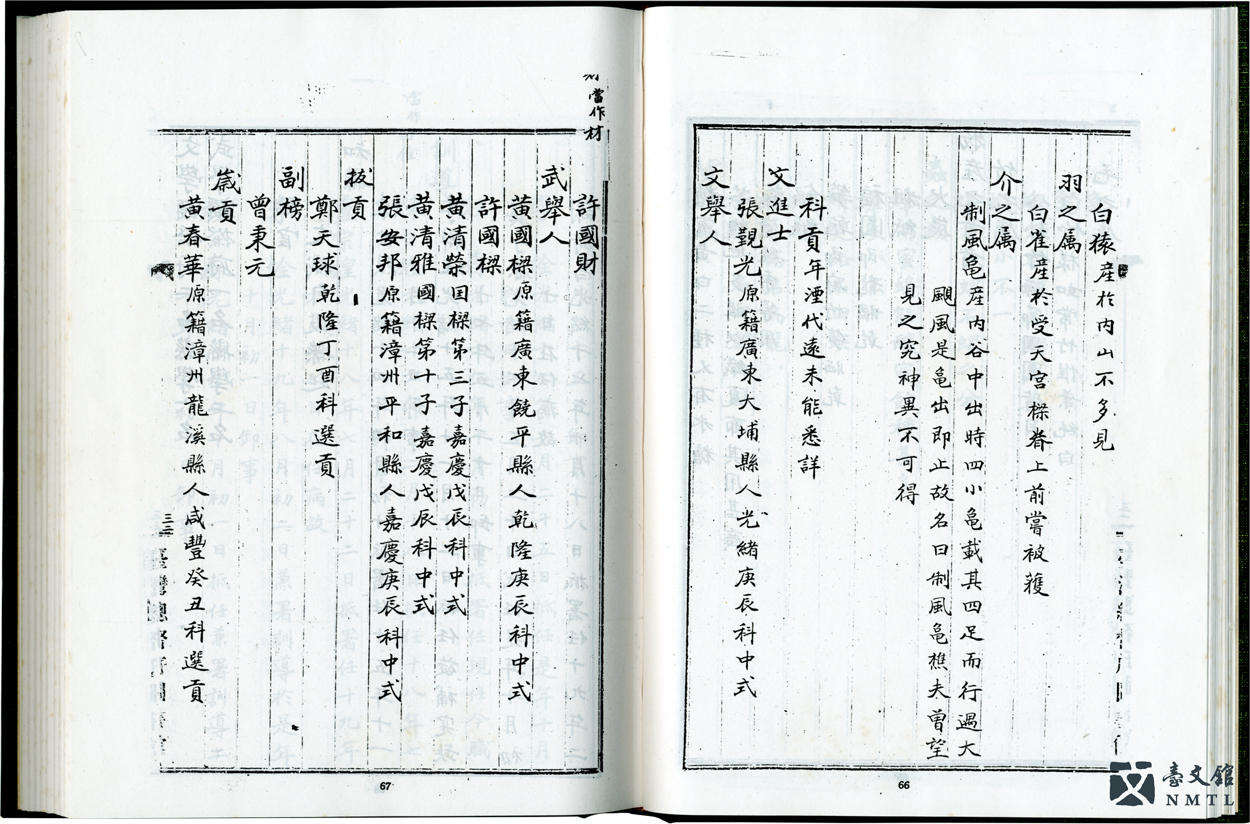 白猿產於內山不多見
羽之属
白雀產於受天宫樑脊上前嘗被獲
介之属
制風亀產內谷中出時四小亀載其四足而行遇大
颶風是亀出即止故名曰制風亀樵夫曾望
見之究神異不可得
科貢年湮代遠未能悉詳
文進士
張覲光原籍廣東大埔縣人光緒庚辰科中式
文舉人
66
當作材
許國財
武舉人
黃國樑原籍廣東饒平縣人乾隆庚辰科中式
許國樑
黃清榮囯樑第三子嘉慶戊辰科中式
黃清雅國樑第十子嘉慶戊辰科中式
張安邦原籍漳州平和縣人嘉慶庚辰科中式
拔貢
鄭天球乾隆丁酉科選貢
副榜
曾秉元
歲貢
黃春華原籍漳州龍溪縣人咸豐癸丑科選貢
三三
臺灣總督府圖書官
67
臺文館
NMTL